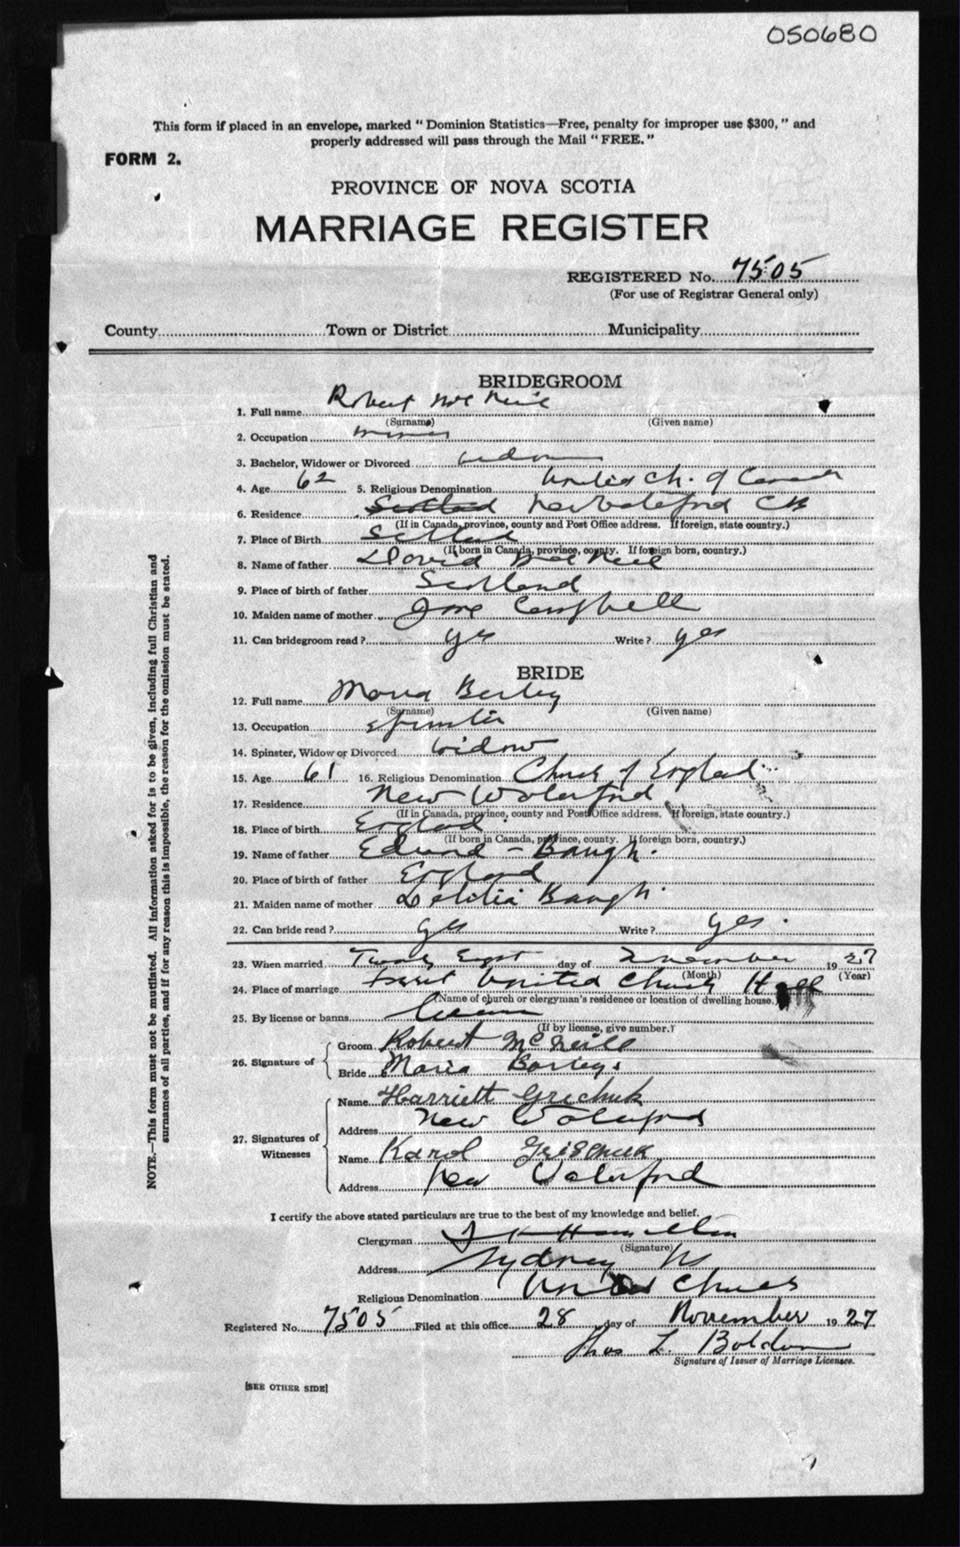 050680
This form if placed in an envelope, marked "Dominion Statistics—Free, penalty for improper use $300," and
properly addressed will pass through the Mail "FREE."
FORM 2.
PROVINCE OF NOVA SCOTIA
MARRIAGE REGISTER
REGISTERED No. 7505
(For use of Registrar General only)
County Town or District Municipality
BRIDEGROOM
1. Full name Robert McNeil
(Surname) (Given name)
2. Occupation
3. Bachelor, Widower or Divorced
4. Age 62 5. Religious Denomination United Ch. of Canada
6. Residence Scotland New Waterford CB
(If in Canada, province, county and Post Office address. If foreign, state country.)
7. Place of Birth Scotland
(If born in Canada, province, county. If foreign born, country.)
8. Name of father David McNeil
9. Place of birth of father Scotland
10. Maiden name of mother Jane Campbell
11. Can bridegroom read? yes Write? yes
BRIDE
12. Full name Maria
(Surname) (Given name)
13. Occupation Spinster
14. Spinster, Widow or Divorced Widow
15. Age 61 16. Religious Denomination Church of England
17. Residence New Waterford
(If in Canada, province, county and Post Office address. If foreign, state country.)
18. Place of birth England
(If born in Canada, province, county. If foreign born, country.)
19. Name of father Edward - Baugh.
20. Place of birth of father England
21. Maiden name of mother Letitia Baugh
22. Can bride read? yes Write? yes.
23. When married Twenty Eight day of November 1927
(Month) (Year)
24. Place of marriage United Church
(Name of church or clergyman's residence or location of dwelling house.)
25. By license or banns
(If by license, give number.)
26. Signature of
Groom Robert McNeill
Bride Maria
27. Signatures of Witnesses
Name Harriett
Address New Waterford
Name Karol
Address New Waterford
I certify the above stated particulars are true to the best of my knowledge and belief.
Clergyman Hamilton
(Signature)
Address Sydney NS
Religious Denomination United Church
Registered No. 7505 Filed at this office 28 day of November 1927
Thos L. Boldon
Signature of Issuer of Marriage Licenses.
[SEE OTHER SIDE]
NOTE.—This form must not be mutilated. All information asked for is to be given, including full Christian and
surnames of all parties, and if for any reason this is impossible, the reason for the omission must be stated.